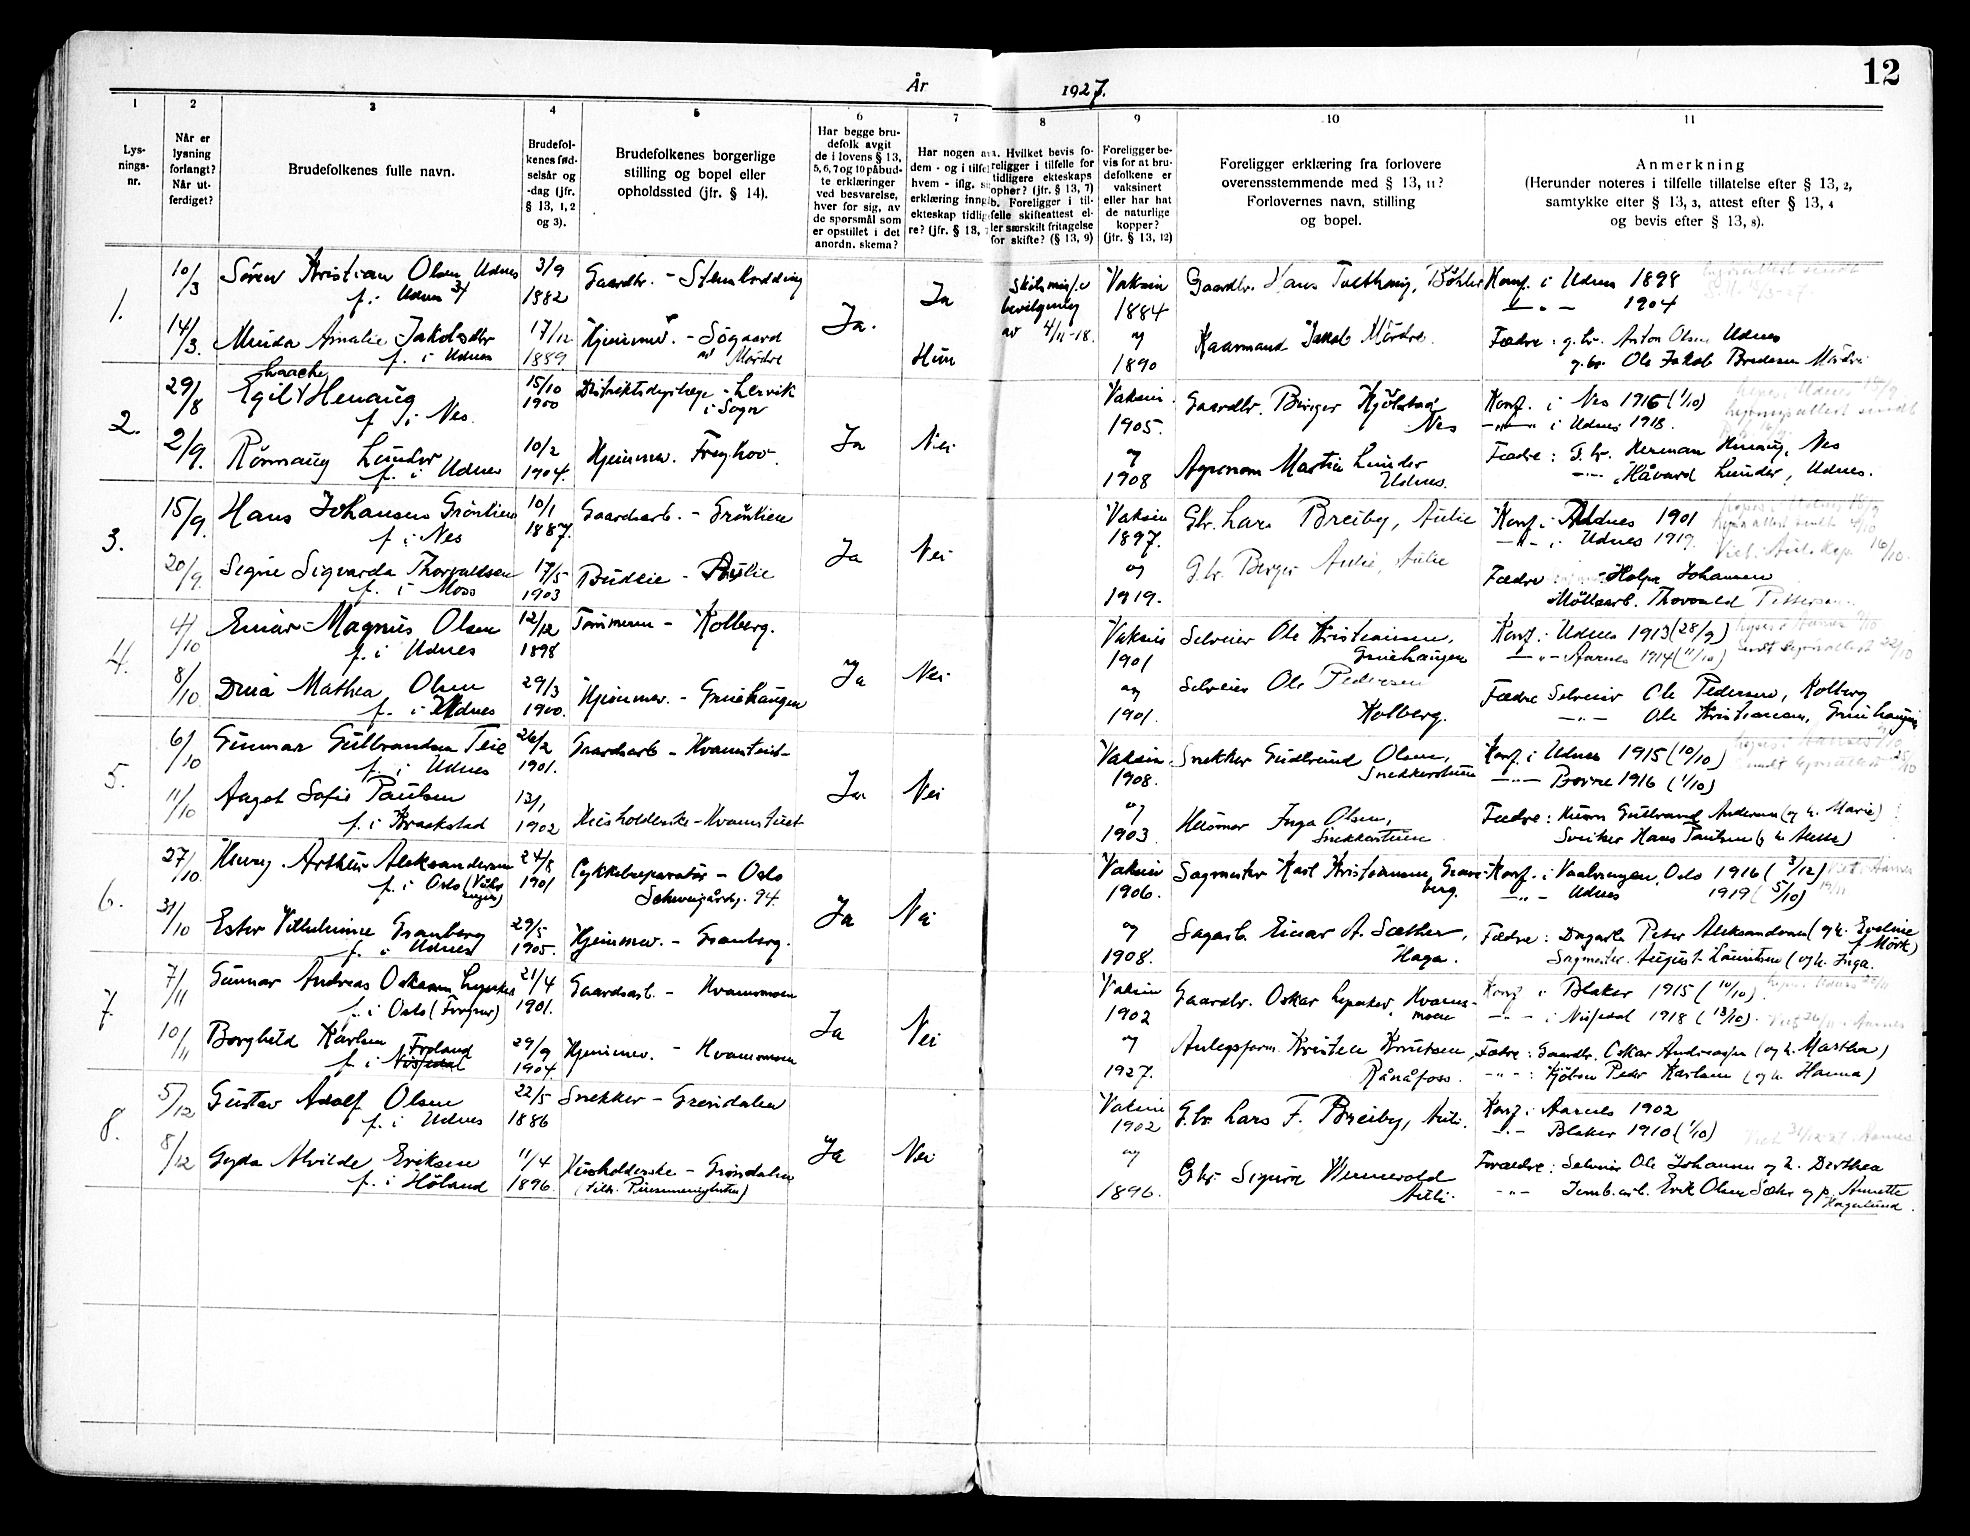 År 1927.
12
1 2 3 4 5 6 7 8 9 10 11
Lys-
nings-
nr.
Når er
lysning
forlangt?
Når ut-
ferdiget?
Brudefolkenes fulle navn.
Brudefol-
kenes fød-
selsår og
-dag (jfr.
§ 13, 1, 2
og 3).
Brudefolkenes borgerlige
stilling og bopel eller
opholdssted (jfr. § 14).
Har begge bru-
defolk avgit
de i lovens § 13,
5, 6, 7 og 10 påbud-
te erklæringer
ved besvarelse,
hver for sig, av
de spørsmål som
er opstillet i det
anordn. skema?
Har nogen av
dem - og i tilfel
hvem - iflg.
erklæring inng
ekteskap tidlig
re? (jfr. § 13,
a. Hvilket bevis fo-
religger i tilfelle for
tidligere ekteskaps
ophør? (jfr. § 13, 7)
b. Foreligger i til-
felle skifteattest el-
ler særskilt fritagelse
for skifte? (§ 13, 9)
Foreligger be-
vis for at bru-
defolkene er
vaksinert
eller har hat
de naturlige
kopper?
(jfr. § 13, 12)
Foreligger erklæring fra forlovere
overensstemmende med § 13, 11?
Forlovernes navn, stilling
og bopel.
Anmerkning
(Herunder noteres i tilfelle tillatelse efter § 13, 2,
samtykke efter § 13, 3, attest efter § 13, 4
og bevis efter § 13, 8).
1.
10/3 Søren Kristian Olsen Udnes 3/9 Gaardbr. -
f. i Udnes 1882
14/3. Minda Amalie Jakobsdtr 17/12 Hjemmev. - Søgaard
f. i Udnes 1889. av Mørdre
Ja.
Ja
Hun
bevilgning
av 4/11-18.
Vaksin
1884
og
1890
Gaardbr. Hans
Kaarmand Jakob Mørdre.
Konf. i Udnes 1898
—"— 1904
Fædre: g.br. Anton Olsen Udnes
g.br. Ole Jakob Bredesen Mørdre
2.
29/8 Egil Haache Henaug 15/10 - Lervik
f. i Nes. 1900 i Sogn
2/9. Lunder 10/2 Hjemmev. Frøyhov.
f. i Udnes 1904.
Ja Nei
Vaksin.
1905.
og
1908
Gaardbr. Birger
Nes
Agronom Martin Lunder
Udnes.
Konf. i Nes 1915 (1/10)
—"— i Udnes 1918.
Fædre: G.br. Herman Henaug, Nes
—"— Håvard Lunder, Udnes.
3.
15/9. Hans Johansen 10/1 Gaardsarb. -
f. i Nes 1887.
20/9. Signe Sigvarda Thorvaldsen 17/5 Budeie - Aulie
f. i Moss 1903
Ja Nei
Vaksin
1897.
og
1919.
Gbr. Lars Breiby, Aulie
G.br. Birger Aulie, Aulie
Konf. i Udnes 1901
—"— i Udnes 1919.
Fædre: Johansen
Møllearb. Thorvald Pettersen
4.
4/10 Einar Magnus Olsen 12/12 Tømmerm - Kolberg.
f. i Udnes 1898
8/10 Dina Mathea Olsen 29/3 Hjemmev. - Gruehaugen
f. i Udnes 1900.
Ja Nei
Vaksin
1901
og
1901.
Selveier Ole Kristiansen,
Gruehaugen
Selveier Ole Pedersen
Kolberg.
Konf. i Udnes 1913 (28/9)
—"— Aarnes 1914 (11/10)
Fædre Selveier Ole Pedersen, Kolberg
—"— Ole Kristiansen, Gruehaugen
5.
6/10 Gunnar Gulbrandsen Teie 26/2 Gaardsarb - Kvamstuen
f. i Udnes 1901.
11/10 Aagot Sofie Paulsen 13/1
f. i Kraakstad 1902 Husholderske - Kvamstuen
Ja Nei
Vaksin
1908.
og
1903
Snekker Gudbrand Olsen,
Snekkerstuen
Husmor Inga Olsen,
Snekkerstuen.
Konf. i Udnes 1915 (10/10)
—"— Borre 1916 (1/10)
Fædre: Husm Gulbrand Andersen (og h. Marie)
Hans Paulsen
6.
27/10. Henry Arthur Aleksandersen 24/8 Cykkelreparatør - Oslo
f. i Oslo 1901 Schweigårdsg. 94.
31/10 Ester Vilhelmine Granberg 29/5 Hjemmev. - Granberg.
f. i Udnes 1905.
Ja Nei
Vaksin
1906.
og
1908.
Sagmester Karl Kristiansen, Gran-
berg.
Sagarb. Einar A. Sæther,
Haga.
Konf. i Vaalerengen, Oslo 1916 (3/12)
—"— Udnes 1919 (5/10)
Fædre: Dagarb. Peter Aleksandersen (og h. Eveline
f. Mørk)
Sagmester August Lauritsen (og h. Inga.
7.
7/11 Gunnar Andreas Oskarsen 21/4 Gaardsarb. - Kvammoen
f. i Oslo 1901.
10/11 Borghild Karlsen 29/9 Hjemmev. - Kvammoen
f. i Froland 1904.
Ja Nei
Vaksin
1902
og
1927.
Gaardbr. Oskar Kvam-
moen
Anlegsform. Kristen Knutsen,
Rånåfoss.
Konf i Blaker 1915 (10/10).
—"— i 1918 (13/10).
Fædre: Gaardbr. Oskar Andreassen (og h. Martha)
—"— : Peder Karlsen (og h. Hanna)
8.
5/12 Gustav Adolf Olsen 22/5 Snekker - Grøndalen
f. i Udnes 1886
8/12 Gyda Alvilde Eriksen 11/4 Husholderske - Grøndalen
f. i Høland 1896.
Ja Nei
Vaksin
1902
og
1896.
G.br. Lars F. Breiby, Auli.
Gbr. Sigurd Wennevold
Auli.
Konf. i Aarnes 1902
—"— Blaker 1910 (1/10)
Forældre: Selveier Ole Johansen og h. Dorthea
—"— Jernb.arb. Erik Olsen og p. Annette
Hagelund.